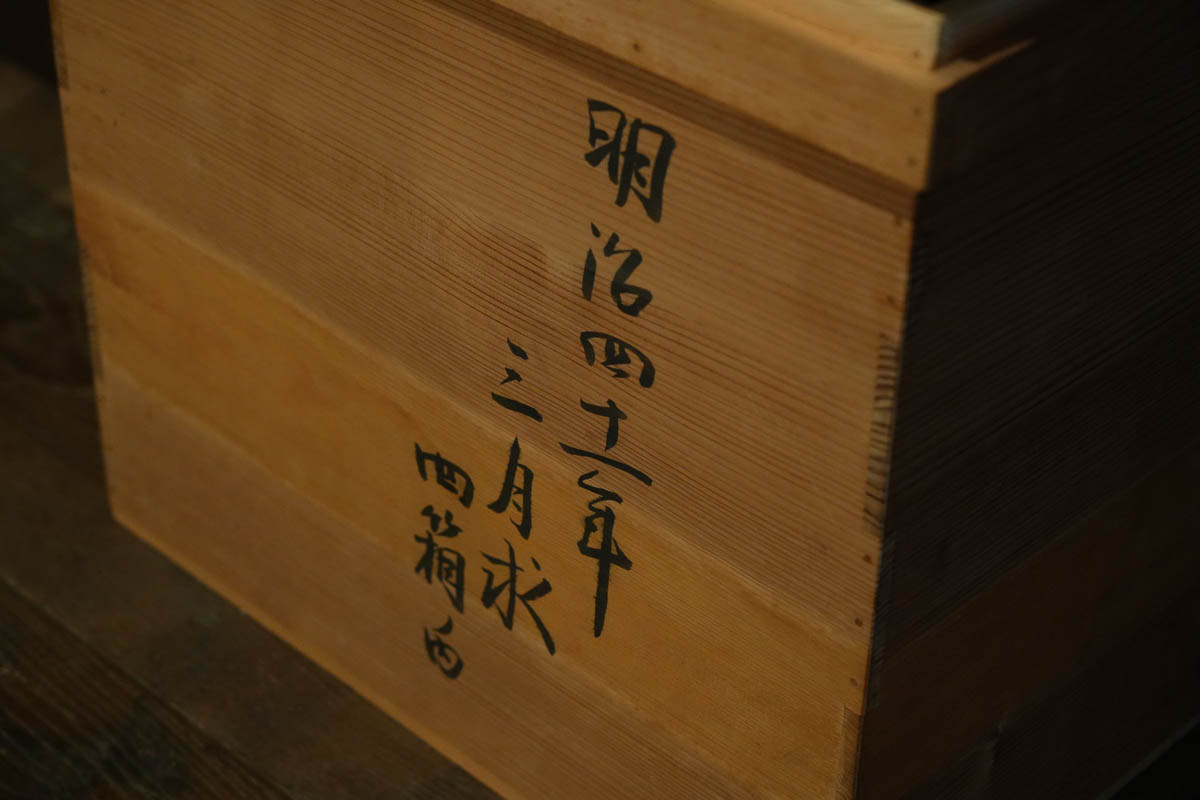 明治四十一年
三月求
四箱内